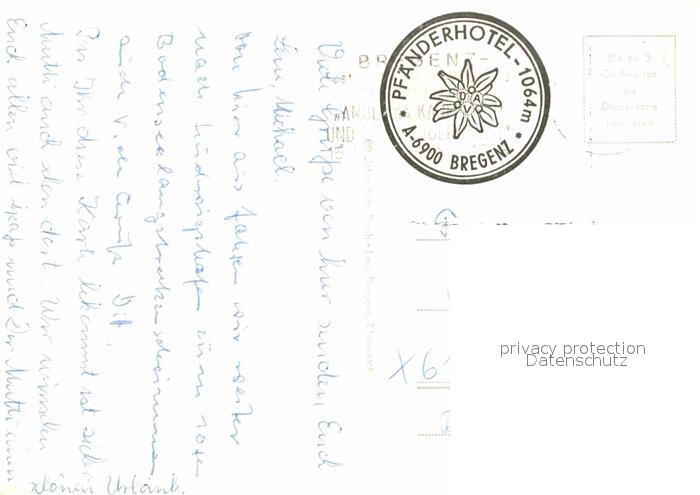 PFÄNDERHOTEL-1064m
DAV
* A-6900 BREGENZ *
BREGENZ-
UND
Bis zu 5
Grußworten
als
Drucksache
frankieren
Viele Grüße von hier senden Euch
Michael.
Von hier aus fahren wir weiter
nach Ludwigshafen zum 10ten
Bodenseelangstreckenschwimmen
auch viele Grüße
Ihr diese Karte bekommt ist sicher
Mutti und den dort. Wir wünschen
Euch allen viel Spaß und Der Mutti einen
schönen Urlaub.
privacy protection
Datenschutz